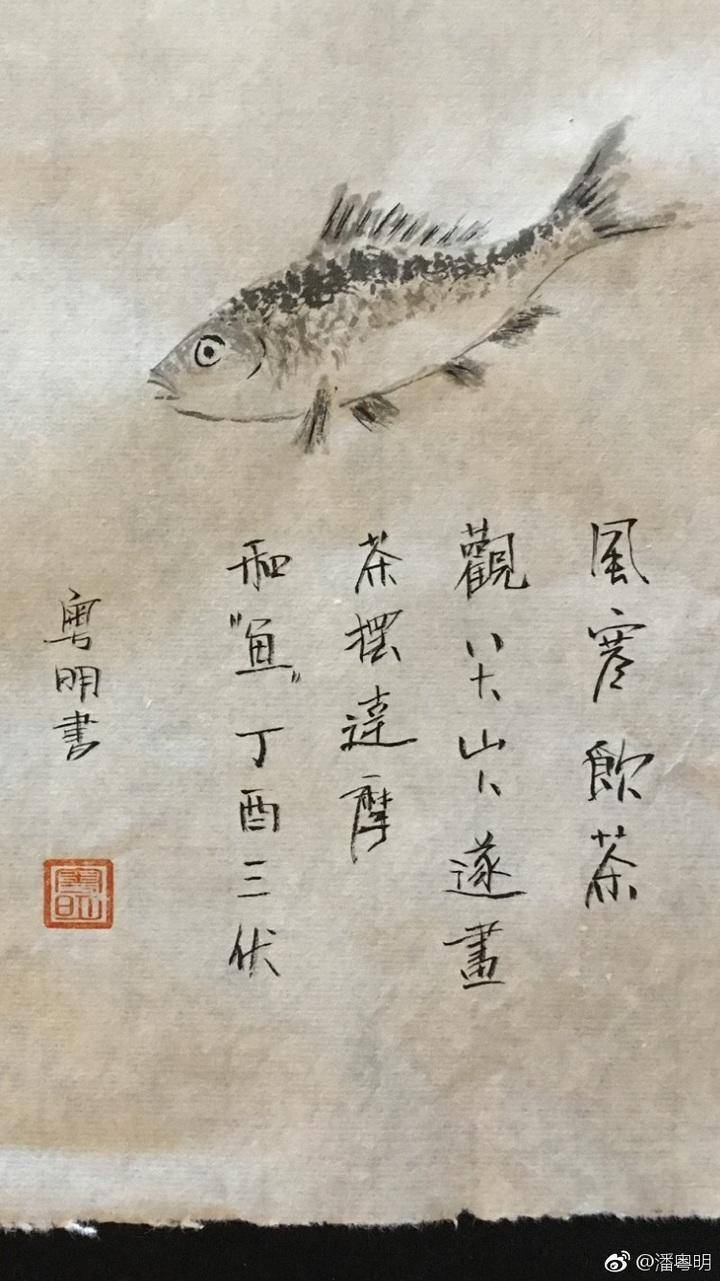 風寒飲茶
觀八大山人遂畫
茶摆達摩
和"鱼"丁酉三伏
粵明書
粵明
@潘粤明